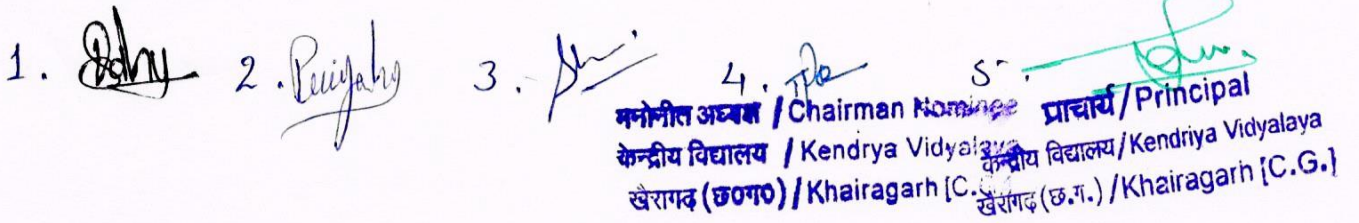 1. 2. 3. 4. 5.
मनोनीत अध्यक्ष / Chairman Nominee
केन्द्रीय विद्यालय / Kendrya Vidyalaya
खैरागढ़ (छ०ग०) / Khairagarh [C.G.]
प्राचार्य / Principal
केन्द्रीय विद्यालय / Kendriya Vidyalaya
खैरागढ़ (छ.ग.) / Khairagarh [C.G.]